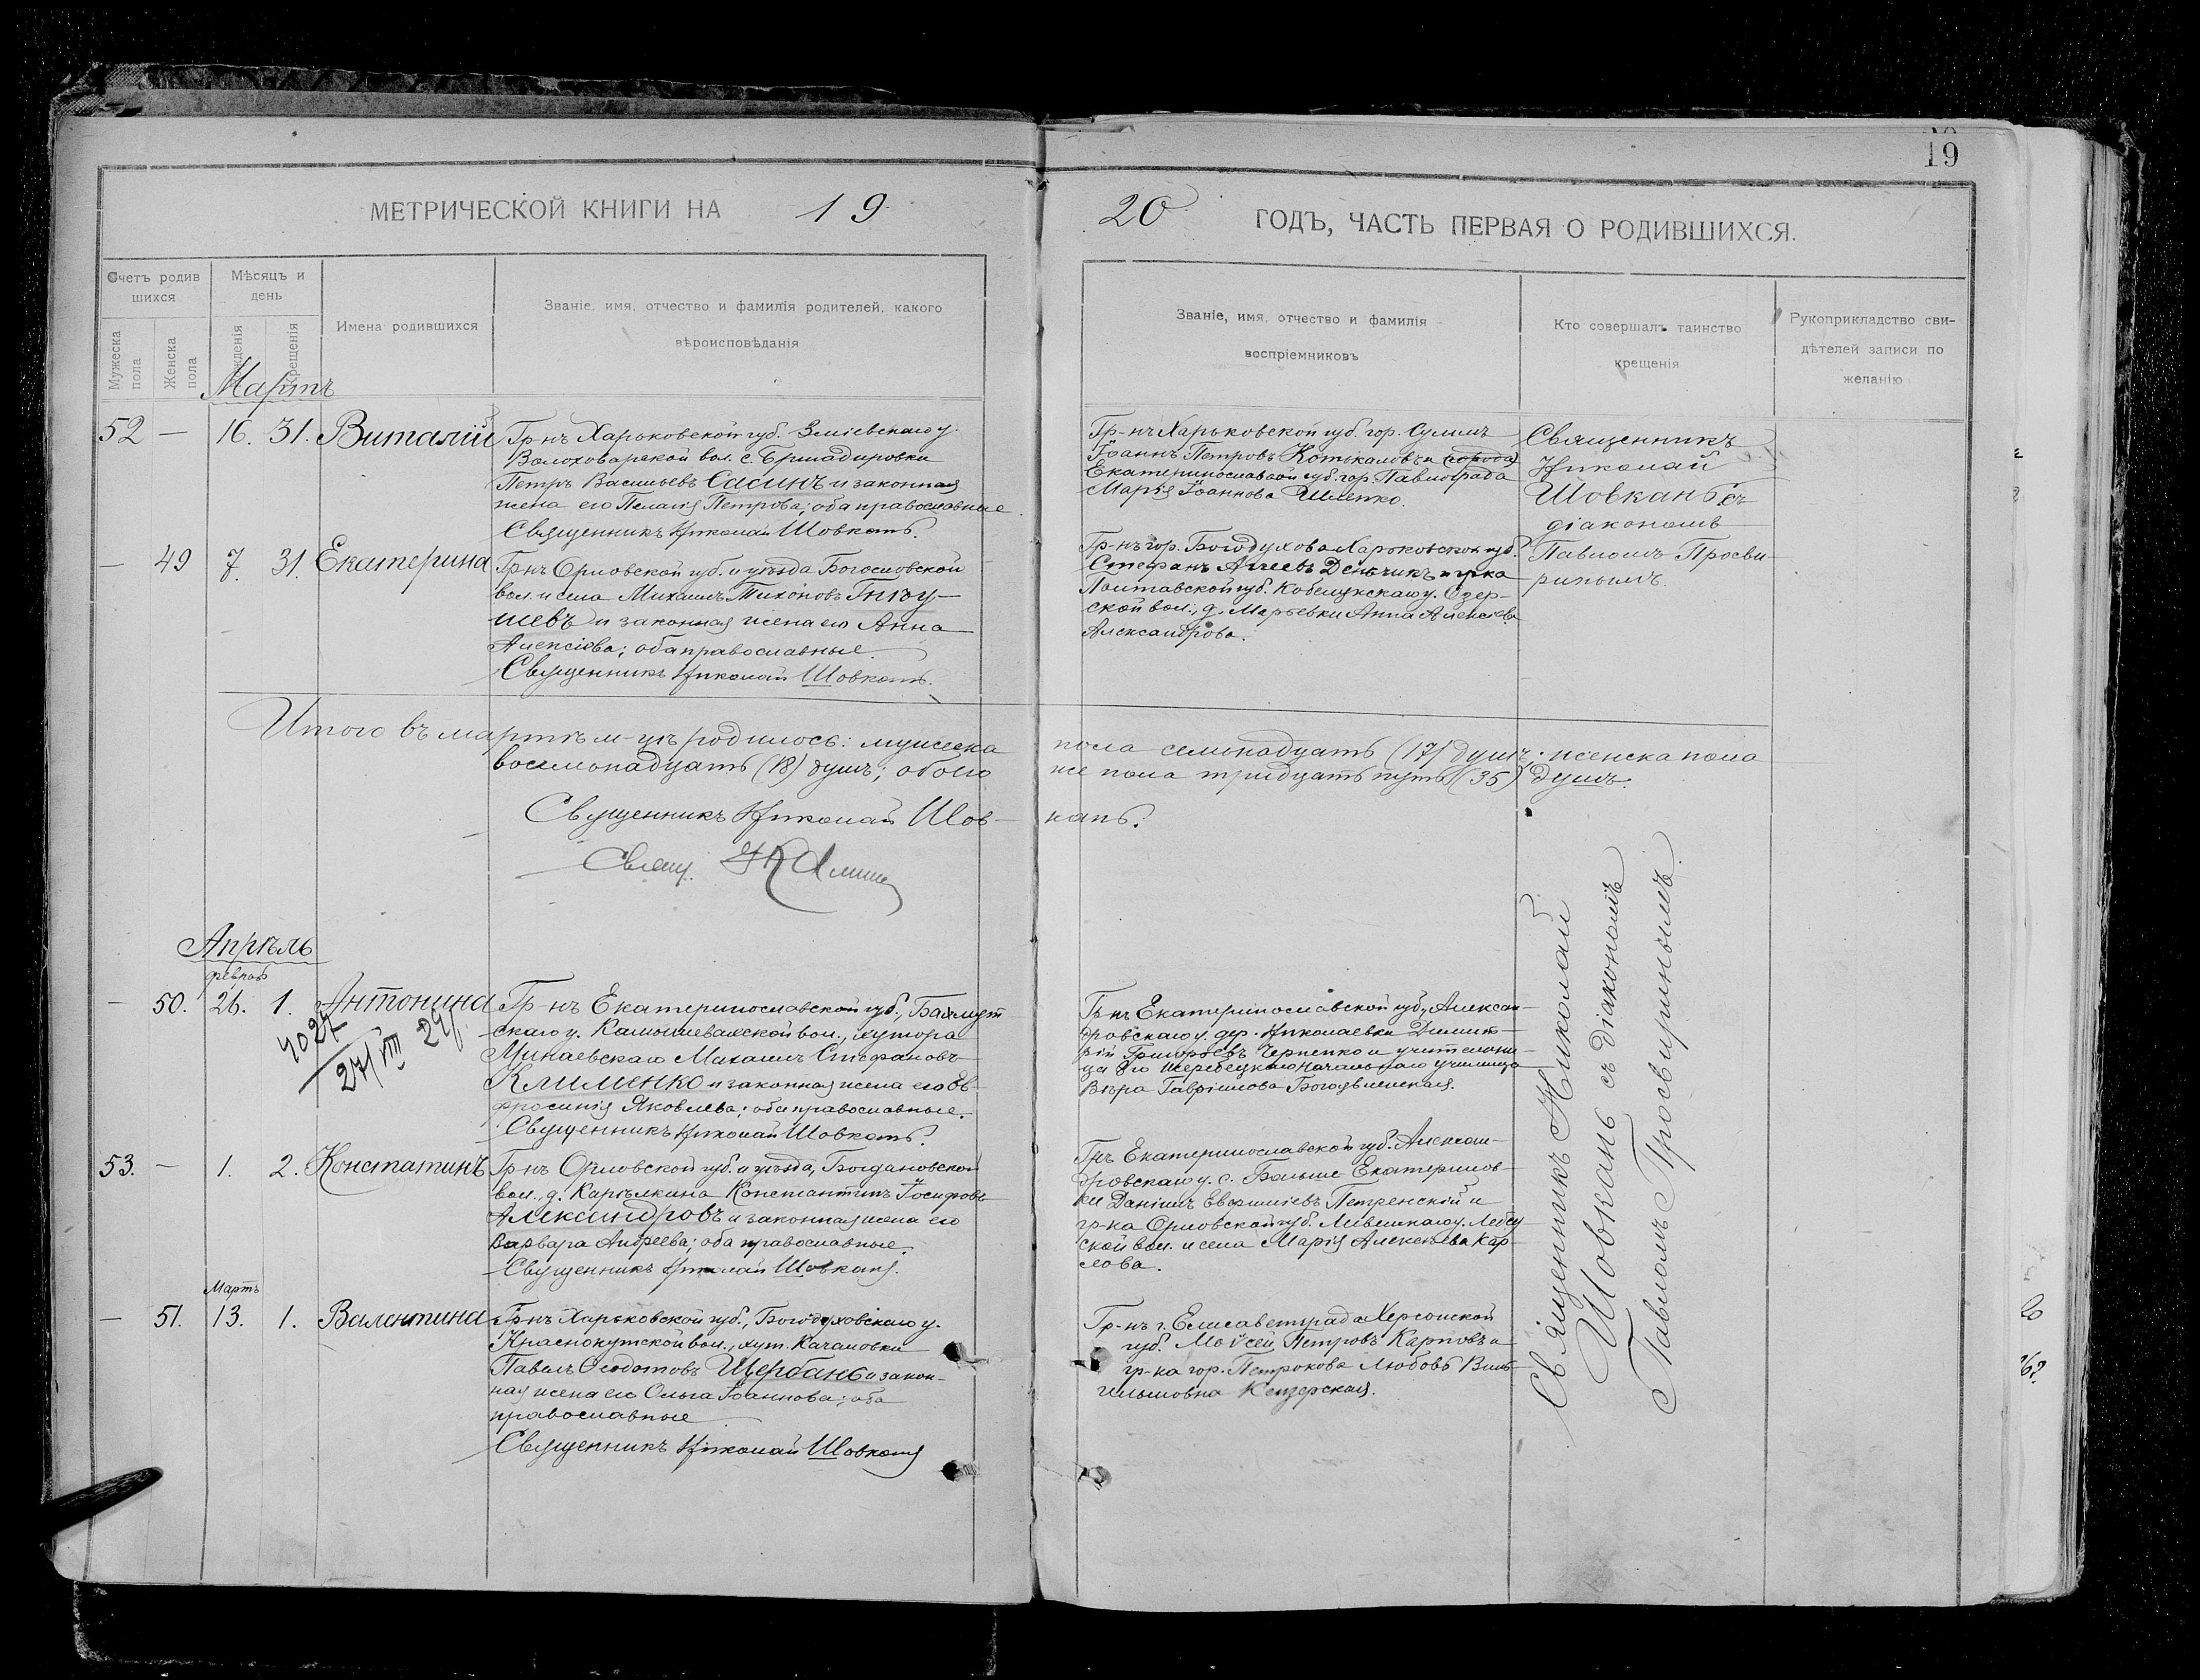 19
МЕТРИЧЕСКОЙ КНИГИ НА 19
20 ГОДЪ, ЧАСТЬ ПЕРВАЯ О РОДИВШИХСЯ.
Счетъ родив
шихся
Мужеска пола
Женска пола
Мѣсяцъ и
день
рожденія
крещенія
Имена родившихся
Званіе, имя, отчество и фамилія родителей, какого
вѣроисповѣданія
Званіе, имя, отчество и фамилія
воспріемниковъ
Кто совершалъ таинство
крещенія
Рукоприкладство сви-
дѣтелей записи по
желанію
Мартъ
52 — 16. 31. Виталій
Гр-нъ Харьковской губ. Зміевскаго у.
вол. с.
Петръ Васильевъ Сасинъ и законная
жена его Пелагія Петрова; оба православные.
Священникъ Николай Шовкань.
Гр-нъ Харьковской губ. гор. Сумъ
Іоаннъ Петровъ и (города)
Екатеринославской губ. гор. Павлограда
Марія Іоаннова
Священникъ
Николай
Шовкань съ
діакономъ
Павломъ Просви-
ринымъ.
— 49 7. 31. Екатерина
Гр-нъ Орловской губ. и уѣзда Богословской
вол. и села Михаилъ Тихоновъ
шевъ и законная жена его Анна
Алексіева; оба православные.
Священникъ Николай Шовкань.
Гр-нъ гор. Богодухова Харьковской губ.
Стефанъ Агѣевъ и гр-ка
Полтавской губ. Кобелукскаго у. Озер-
ской вол., д. Марьевки Анна Алексѣева
Александрова.
Итого въ мартѣ м-цѣ родилось: мужеска пола семьнадцать (17) душъ; женска пола
восемьнадцать (18) душъ; обоего же пола тридцать пять (35) душъ.
Священникъ Николай Шов- кань.
Свящ.
Апрѣль
февраль
— 50. 26. 1. Антонина
4027
27/VIII 24
Гр-нъ Екатеринославской губ., Бахмут-
скаго у. Камышевахской вол., хутора
Минаевскаго Михаилъ Стефановъ
Клименко и законная жена его Ев-
фросинія Яковлева; оба православные.
Священникъ Николай Шовкань.
Гр-нъ Екатеринославской губ., Алексан-
дровскаго у. дер. Николаевки Димит-
рій Григорьевъ Черненко и учительни-
ца Жеребецкаго начальнаго училища
Вѣра Гавріилова Богоявленская.
Священникъ Николай
Шовкань съ діакономъ
Павломъ Просвиринымъ.
53. — 1. 2. Констатинъ
Гр-нъ Орловской губ. и уѣзда, Богдановской
вол., д. Константинъ Іосифовъ
Александровъ и законная жена его
Варвара Андреева; оба православные.
Священникъ Николай Шовкань.
Гр-нъ Екатеринославской губ. Алексан-
дровскаго у. с. Больше Екатеринов-
ки Даніилъ Петренскій и
гр-ка Орловской губ. у.
ской вол. и села Марія Алексѣева Кар-
лова.
Мартъ
— 51. 13. 1. Валентина
Гр-нъ Харьковской губ., Богодуховскаго у.
Краснокутской вол., хут. Качановки
Павелъ Ѳеодотовъ Щербань и закон-
ная жена его Ольга Іоаннова; оба
православные.
Священникъ Николай Шовкань
Гр-нъ г. Елисаветграда Херсонской
губ. Моѵсей Петровъ Карповъ и
гр-ка гор. Петрокова Любовь Виль-
гельмовна